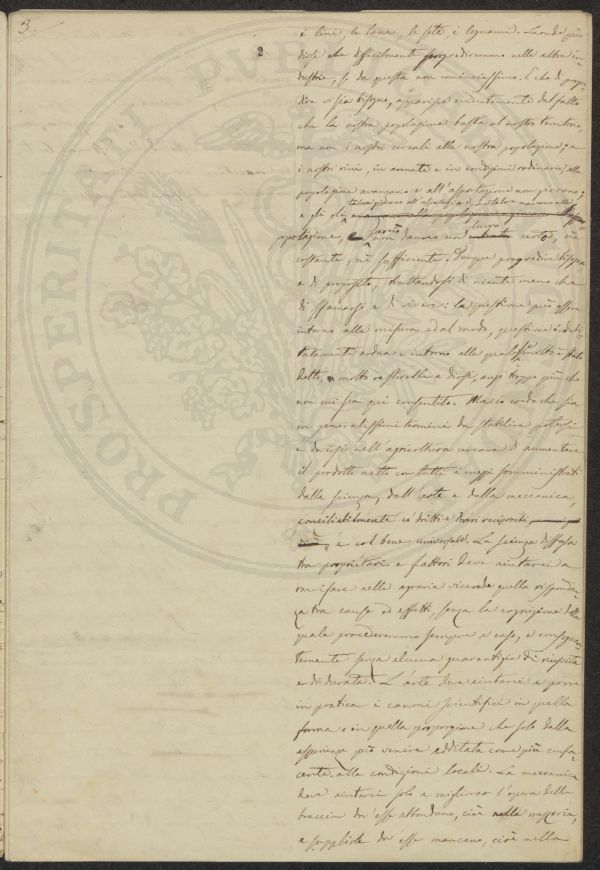 3.
2
e line, le lane, le sete, i legnami. Laonde può
dirsi che difficilmente progrediremmo nelle altre in-
dustrie, se da questa non cominciassimo. E che di progre-
dire vi sia bisogno, apparisce evidentemente dal fatto
che la nostra popolazione basta al nostro territorio,
ma non i nostri cereali alla nostra popolazione; e
i nostri vini, in annate e in condizioni ordinarie, alla
popolazione avanzano e all'asportazione non giovano;
talora giovano all'asportazione, talora mancano alla
e gli olî
popolazione, perciò non danno un lucro certo, nè
costante, nè sufficiente. Dunque progredire bisogna
e di proposito, trattandosi di niente meno che
di sfamarsi e di vivere: la questione può essere
intorno alla misura ed al modo, questione
ardua e intorno alla quale molto è stato
detto, e molto resterebbe a dirsi, anzi troppo più che
non mi sia qui consentito. Ma io credo che sia
in generalissimi termini da stabilire potersi
e doversi nell'agricoltura cercare di aumentare
il prodotto netto con tutti i mezzi somministrati
dalla scienza, dall'arte e dalla meccanica,
conciliabilmente co' dritti e doveri reciproci,
e col bene universale. La scienza diffusa
tra proprietari e fattori deve aiutarci a
ravvisare nelle agrarie vicende quella risponden-
za tra cause ed effetti, senza la cognizione della
quale procederemmo sempre a caso, e conseguen-
temente senza alcuna guarentigia di riuscita
e di durata. L'arte deve aiutarci a porre
in pratica i canoni scientifici in quella
forma o in quella proporzione che solo dalla
esperienza può venire additata come più confa-
cente alle condizioni locali. La meccanica
deve aiutarci solo a migliorar l'opera delle
braccia dov'esse abbondano, cioè nella mezzeria,
a supplirle dov'esse mancano, cioè nella
PROSPERITATI PUBL